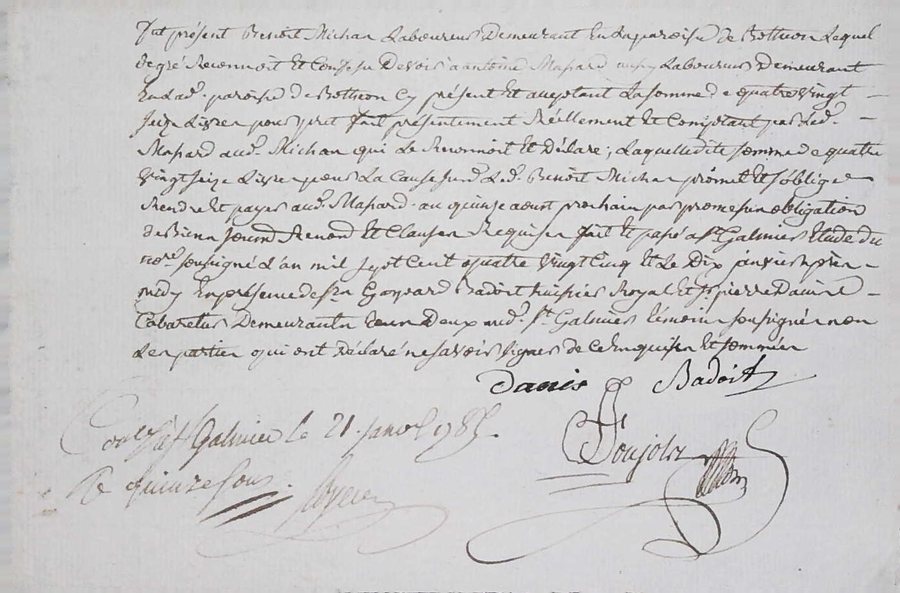 fut présent Benoit Michan Laboureur Demeurant En La paroisse de Botheon Lequel
de gré Reconnoit Et Confesse Devoir a antoine Massard aussy Laboureur Demeurant
En Lad. paroisse de Botheon Cy présent Et aceptant La somme de quatre vingt
seize Livres pour pret fait présentement Réellement Et Comptant par Led.
Massard aud. Michan qui Le Reconnoit Et Déclare; Laquelle dite somme de quatre
vingt seize Livres pour La Cause susd. Led. Benoit Michan promet Et s'oblige
Rendre Et payer aud. Massard au quinze aout prochain par promesse obligation
de Biens soumd. Renond. Et Clauses Requises fait Et passé a St. Galmier Etude du
nore. soussigné L'an mil sept Cent quatre vingt Cinq Et Le Dix janvier après
midy En présence de Sr. Gaspard Badoit huissier Royal Et Sr. pierre
Cabaretier Demeurants tous Deux aud. St. Galmier témoins soussignés non
Les parties qui ont Déclaré ne savoir signer de Ce Enquises Et sommées
Danis Badoit
Con.lé à St Galmier le 21. janv. 1785.
R quinze sous.
Doujols